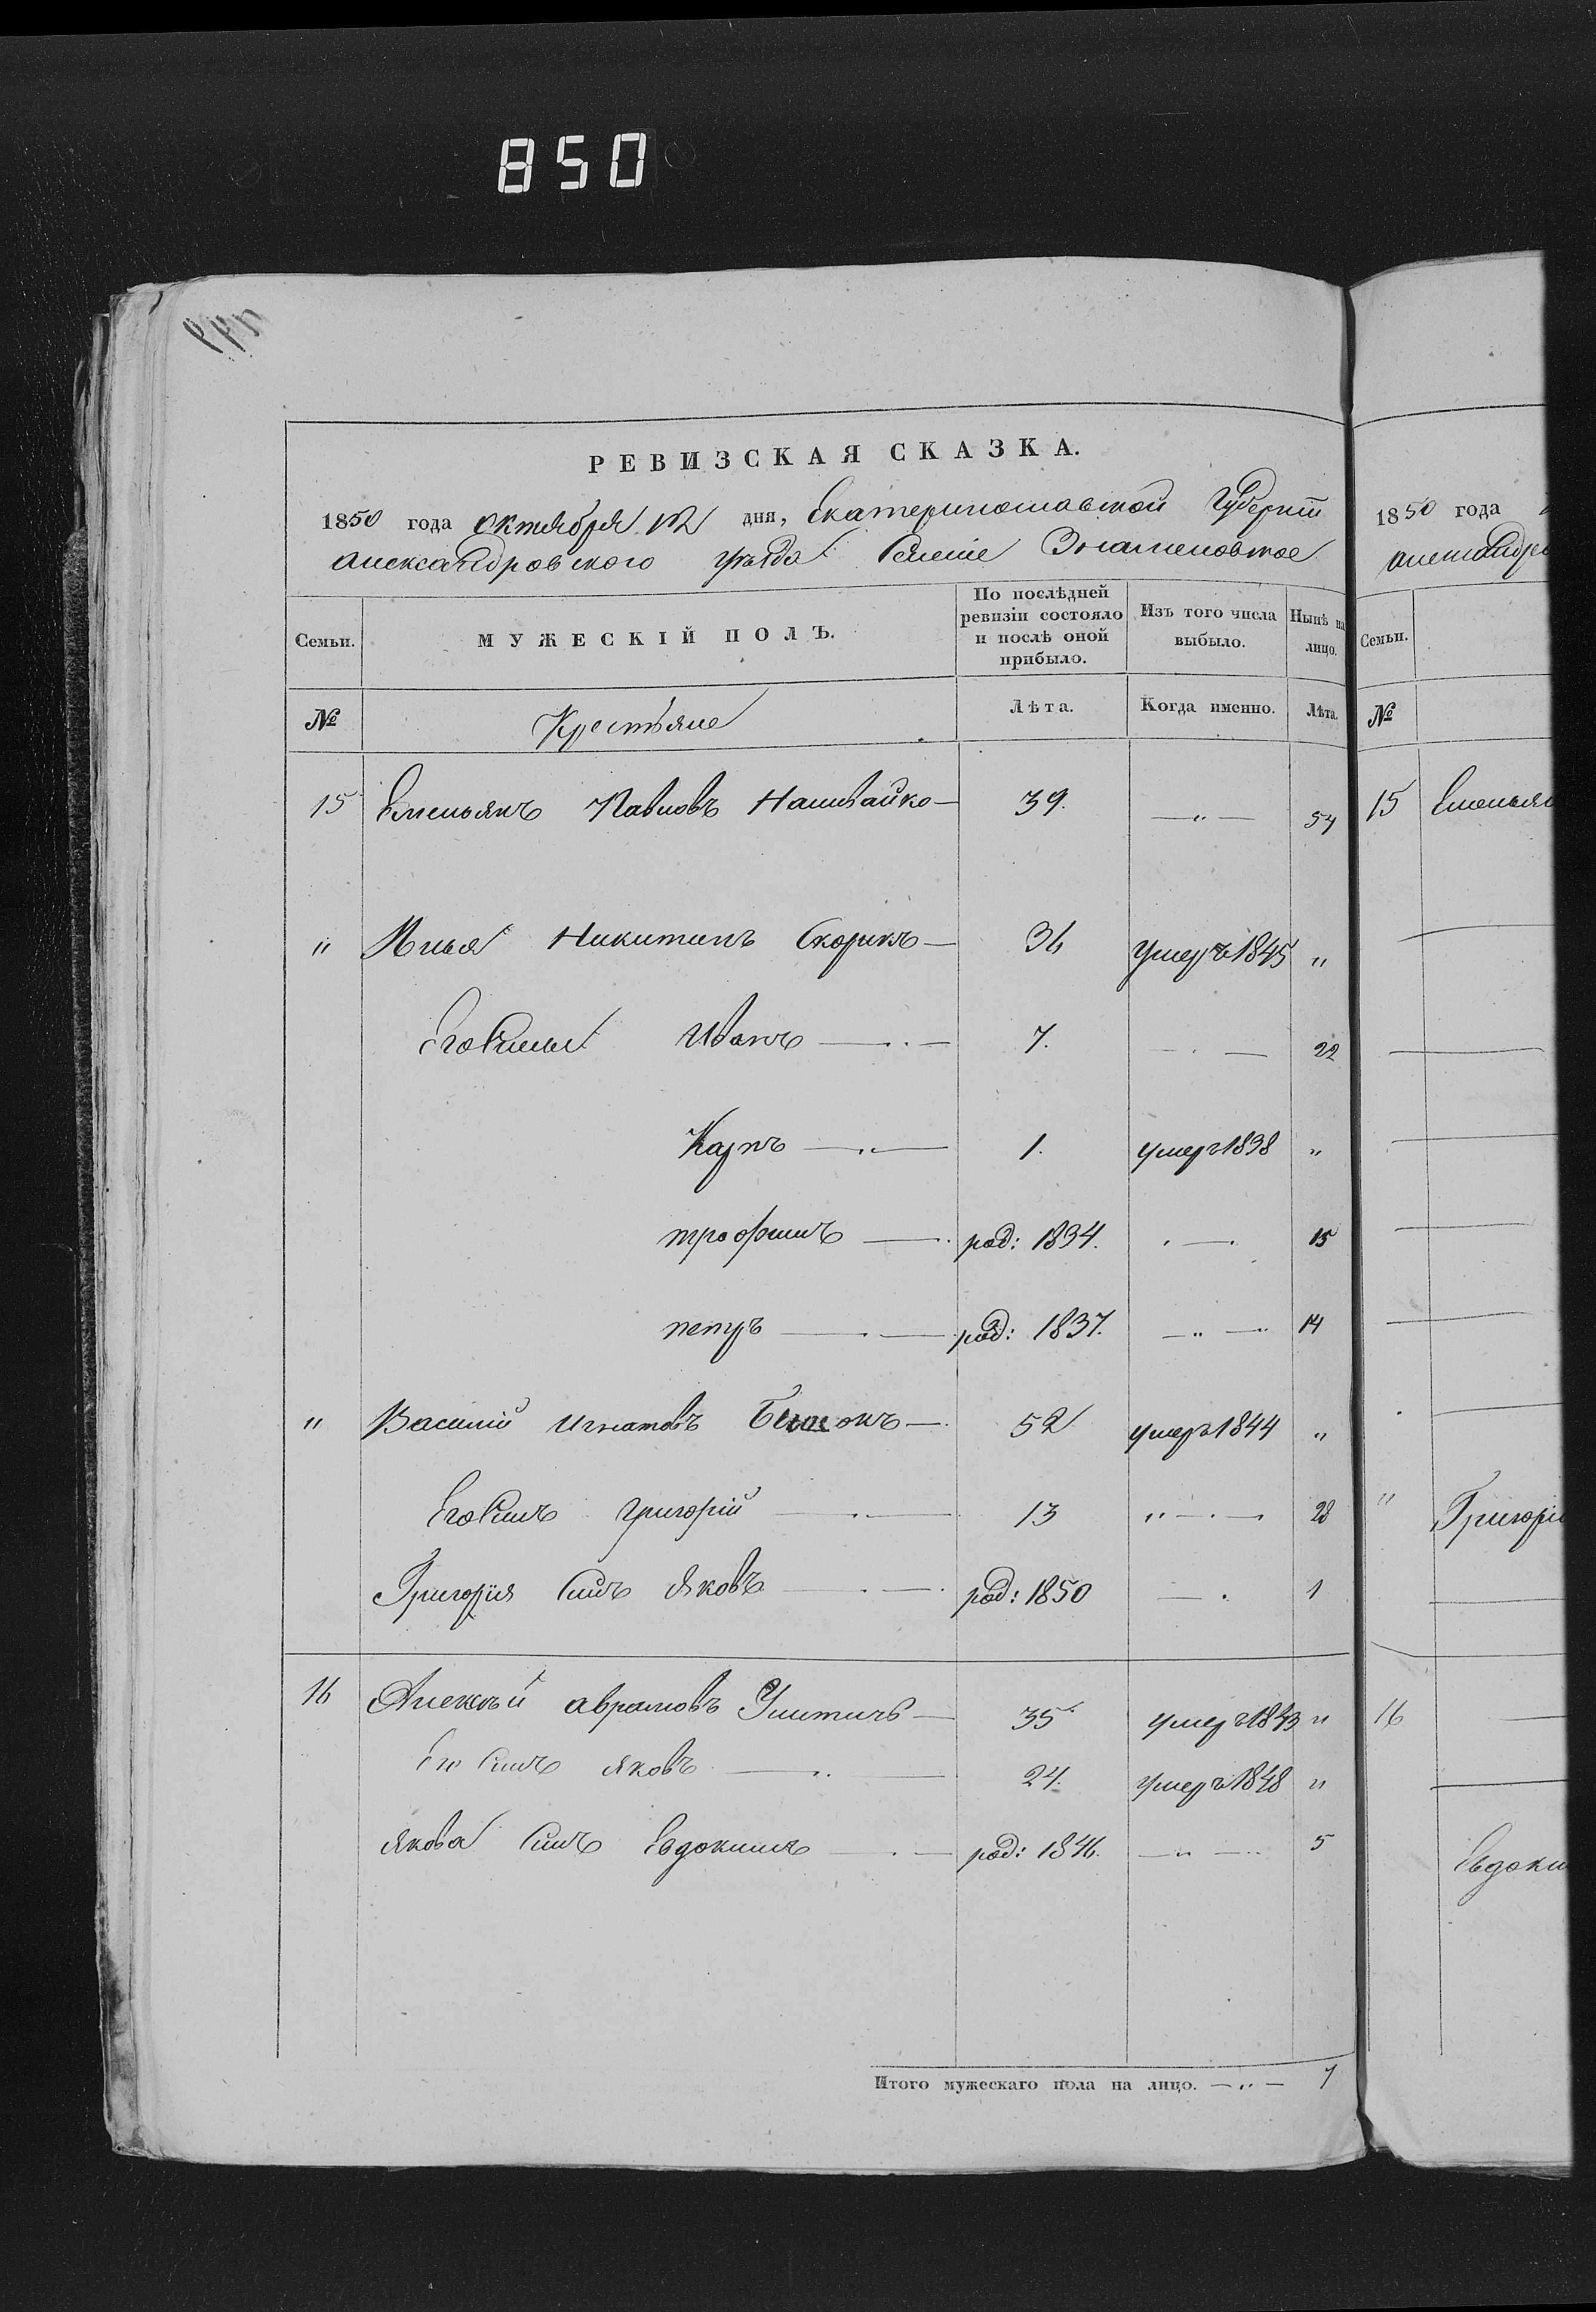 850
РЕВИЗСКАЯ СКАЗКА.
1850 года октября 12 дня, Екатеринославской Губернiи
Александровского уѣзда Селенiе Знаменовское
Семьи.
МУЖЕСКІЙ ПОЛЪ.
По послѣдней ревизіи состояло и послѣ оной прибыло.
Изъ того числа выбыло.
Нынѣ на лицо.
№ Крестьяне Лѣта. Когда именно. Лѣта.
15 Емельянъ Павловъ Наливайко — 39. — " — 54
" Илья Никитинъ Скорикъ — 36 умеръ 1845 "
Его Сыны Иванъ — 7. — . — 22
Карпъ — 1. умеръ 1838 "
трофимъ — род: 1834. . — . 15
петръ — род: 1837. — " — 14
" Василій Игнатовъ — 52 умеръ 1844 "
Его Сынъ григорій — 13 " — . — 28
Григорія Сынъ Яковъ — род: 1850 — . 1
16 Алексѣй аврамовъ — 35 умеръ 1843 "
Его Сынъ яковъ — 24. умеръ 1848 "
якова Сынъ Евдокимъ — род: 1846. — " — 5
Итого мужескаго пола на лицо. — " — 7
1850 года
Семьи.
№
15 Емельян
" Григорі
16
Евдоки